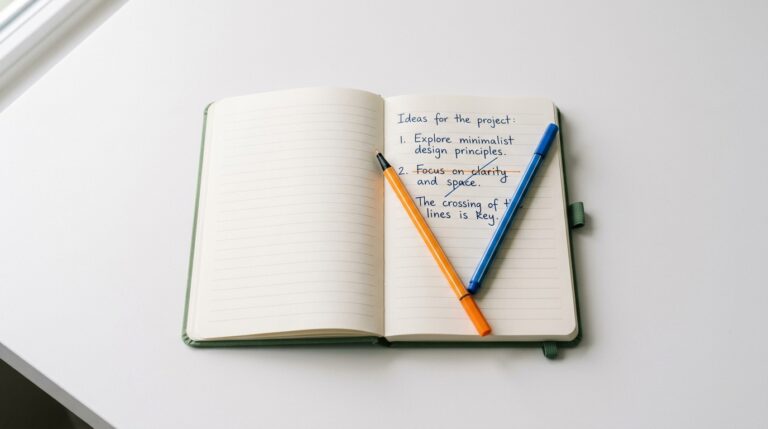 Ideas for the project:
1. Explore minimalist
design principles.
2. Focus on clarity
and space.
The crossing of
lines is key.